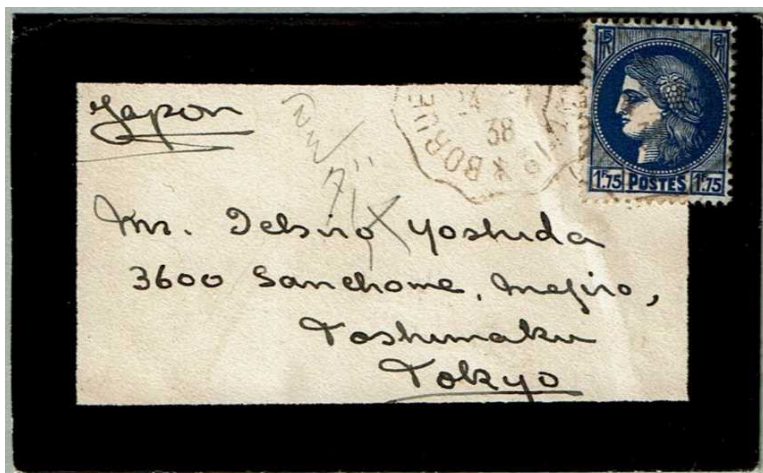 Japon
BORDE
24
38
RF
1F75 POSTES 1F75
Mr. Tetsiro Yoshida
3600 Sanchome, Mejiro,
Toshimaku
Tokyo